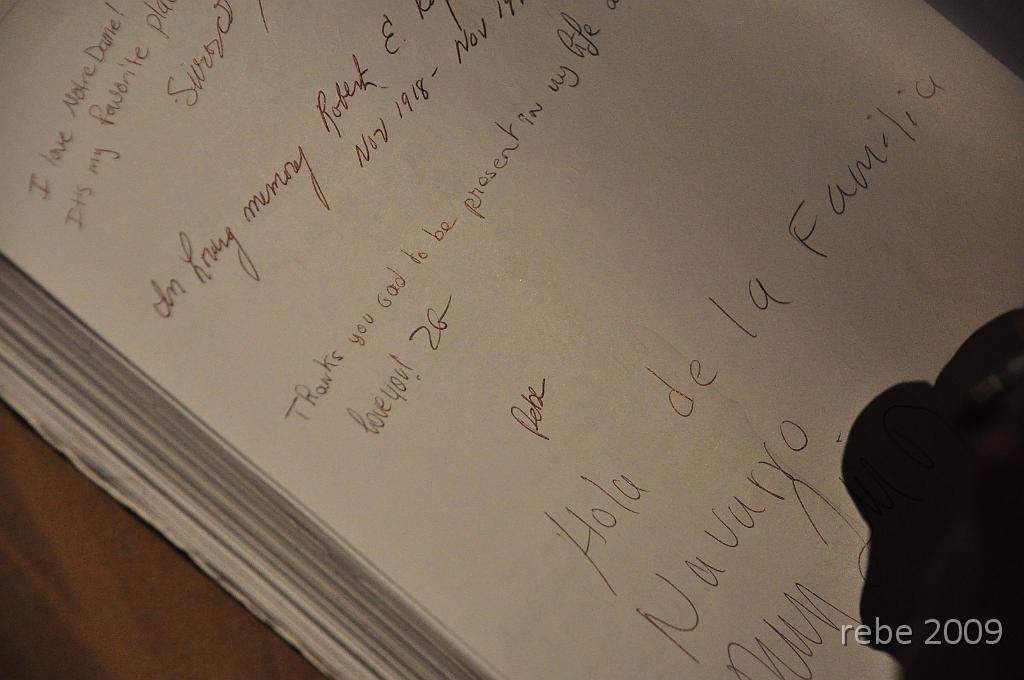 I love Notre Dame!
It's my favorite
In Loving memory Robert E.
Nov 1918 - Nov
Thanks you God to be present in my life
love you! 26
Rebe
Hola de la Familia
Navarro.
rebe 2009